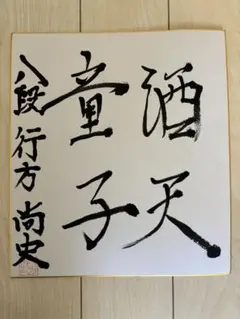 酒天
童子
八段 行方 尚史